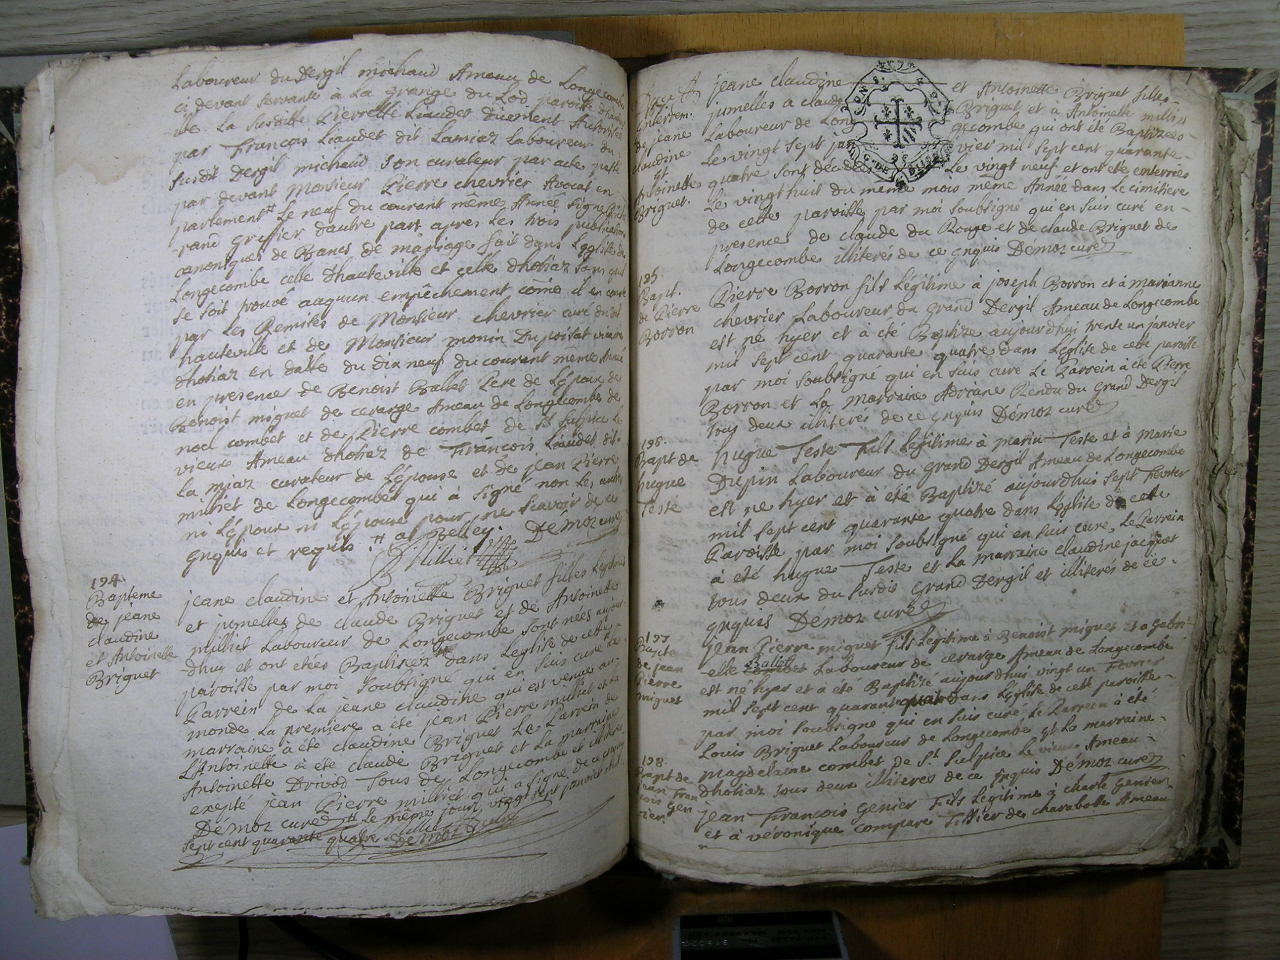 Laboureur du Dergil michaud Ameau de Longecombe
ci devant servante à La grange du Lod paroisse
La susditte Pierrette Liaudet düement Authorisée
par François Liaudet dit Lamiaz Laboureur du
susdit Dergil michaud son curateur par acte
par devant Monsieur Pierre chevrier Avocat en
parlement Le neuf du courant meme Année signé
greffier dautre part apres Les trois publications
canoniques de Bancs de mariage fait dans Legglise de
Longecombe celle dhauteville et celle dhotiaz sans quil
se soit trouvé aucqun empêchement come il en conste
par Les Remises de Monsieur chevrier curé du dit
hauteville et de Monsieur monin Duposlat vicaire
dhotiaz en datte du dix neuf du courant meme Année
en presence de Benoist Ballet Pere de Lépoux de
Benoist miguet de cerarge Ameau de Longecombe de
noel combet et de Pierre combet de St Sulpice Le
vieux Ameau dhotiaz de François Liaudet dit
La miaz curateur de Lépouse et de jean Pierre
milliet de Longecombe qui à signé non les autres
ni Lépoux ni Lépouse pour ne scavoir de ce
enquis et requis
Milliet Démoz curé
194.
Bapteme
de jeane
claudine
et Antoinette
Briguet
jeane claudine et Antoinette Briguet filles Legitimes
et jumelles de claude Briguet et de Antoinette
milliet Laboureur de Longecombe sont nées aujour
dhuy et ont etées Baptisées dans Leglise de cette
paroisse par moi Soubsigné qui en suis curé Le
Parrein de La jeane claudine qui est venue au
monde La premiere a été jean Pierre milliet et La
marraine à été claudine Briguet Le Parrein de
L'Antoinette à été claude Briguet et La marraine
Antoinette Drivod Tous de Longecombe et illiterés
exepté jean Pierre milliet qui a signé de ce enquis
Démoz curé Le même jour vingt sept janvier mil
sept cent quarante quatre Milliet Démoz curé
Enterem.
de jeane
claudine
et
Antoinette
Briguet.
jeane claudine et Antoinette Briguet filles
jumelles a claude Briguet et à Antoinette milliet
Laboureur de Longecombe qui ont été Baptizées
Le vingt sept janvier mil sept cent quarante
quatre sont décédées Le vingt neuf et ont eté enterrées
Le vingt huit du même mois même Année dans Le cimitiere
de cette paroisse par moi soubsigné qui en suis curé en
presence de claude du Rouge et de claude Briguet de
Longecombe illiterés de ce enquis Démoz curé
195
Bapt.
de Pierre
Borron
Pierre Borron fils Légitime à joseph Borron et à marianne
chevrier Laboureur du Grand Dergil Ameau de Longecombe
est né hyer et à été Baptizé aujourdhuy trente un janvier
mil sept cent quarante quatre dans Léglise de cete paroisse
par moi soubsigné qui en suis curé Le Parrein à été Pierre
Borron et La Marraine Adriane Rendu du Grand Dergil
tous deux illiterés de ce enquis Démoz curé
196.
Bapt de
hugue
Teste
hugue Teste Fils Legitime à marin Teste et à Marie
Dupin Laboureur du Grand Dergil Ameau de Longecombe
est né hyer et à été Baptizé aujourdhui sept Fevrier
mil sept cent quarante quatre dans Léglise de cette
Paroisse par moi soubsigné qui en suis curé, Le Parrein
à été hugue Teste et La marraine claudine jacquet
tous deux du susdit Grand Dergil et illiterés de ce
enquis Démoz curé
197
Bapt
de jean
Pierre
miguet
jean Pierre miguet Fils Legitime à Benoist miguet et a Gabri
elle Ballet Laboureur de cerarge Ameau de Longecombe
est né hyer et a été Baptizé aujourdhui vingt un Fevrier
mil sept cent quarante quatre dans Leglise de cete paroisse
par moi soubsigné qui en suis curé Le Parrein à été
Louis Briguet Laboureur de Longecombe et La marraine
magdelaine combet de St Sulpice Le vieux Ameau
dhotiaz tous deux illiterés de ce enquis Démoz curé
198.
Bapt de
jean Fran
cois Gen
ier
jean François Genier Fils Légitime à charle Genier
et à véronique compare Tillier des charabotte Ameau